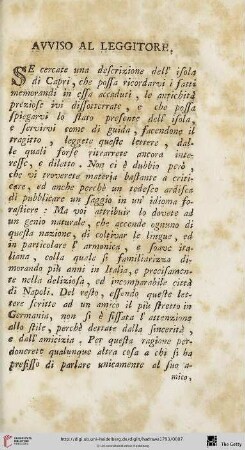 AVVISO AL LEGGITORE,
SE cercate una descrizione dell' isola
di Capri, che possa ricordarvi i fatti
memorandi in essa accaduti, le antichità
preziose ivi dissotterrate, e che possa
spiegarvi lo stato presente dell' isola,
e servirvi come di guida, facendone il
tragitto, leggete queste lettere, dal-
le quali forse ritrarrete ancora inte-
resse, e diletto. Non ci è dubbio però,
che vi troverete materia bastante a criti-
care, ed anche perchè un tedesco ardisca
di pubblicare un saggio in un' idioma fo-
rastiere: Ma voi attribuir lo dovete ad
un genio naturale, che accende ognuno di
questa nazione, di coltivar le lingue, ed
in particolare l' armonica, e soave ita-
liana, colla quale si familiarizza di-
morando più anni in Italia, e precisamen-
te nella deliziosa, ed incomparabile città
di Napoli. Del resto, essendo queste let-
tere scritte ad un amico il più stretto in
Germania, non si è fissata l'attenzione
allo stile, perchè dettate dalla sincerità,
e dall'amicizia. Per questa ragione per-
donerete qualunque altra cosa a chi si ha
prefisso di parlare unicamente al suo a-
mico,
The Getty